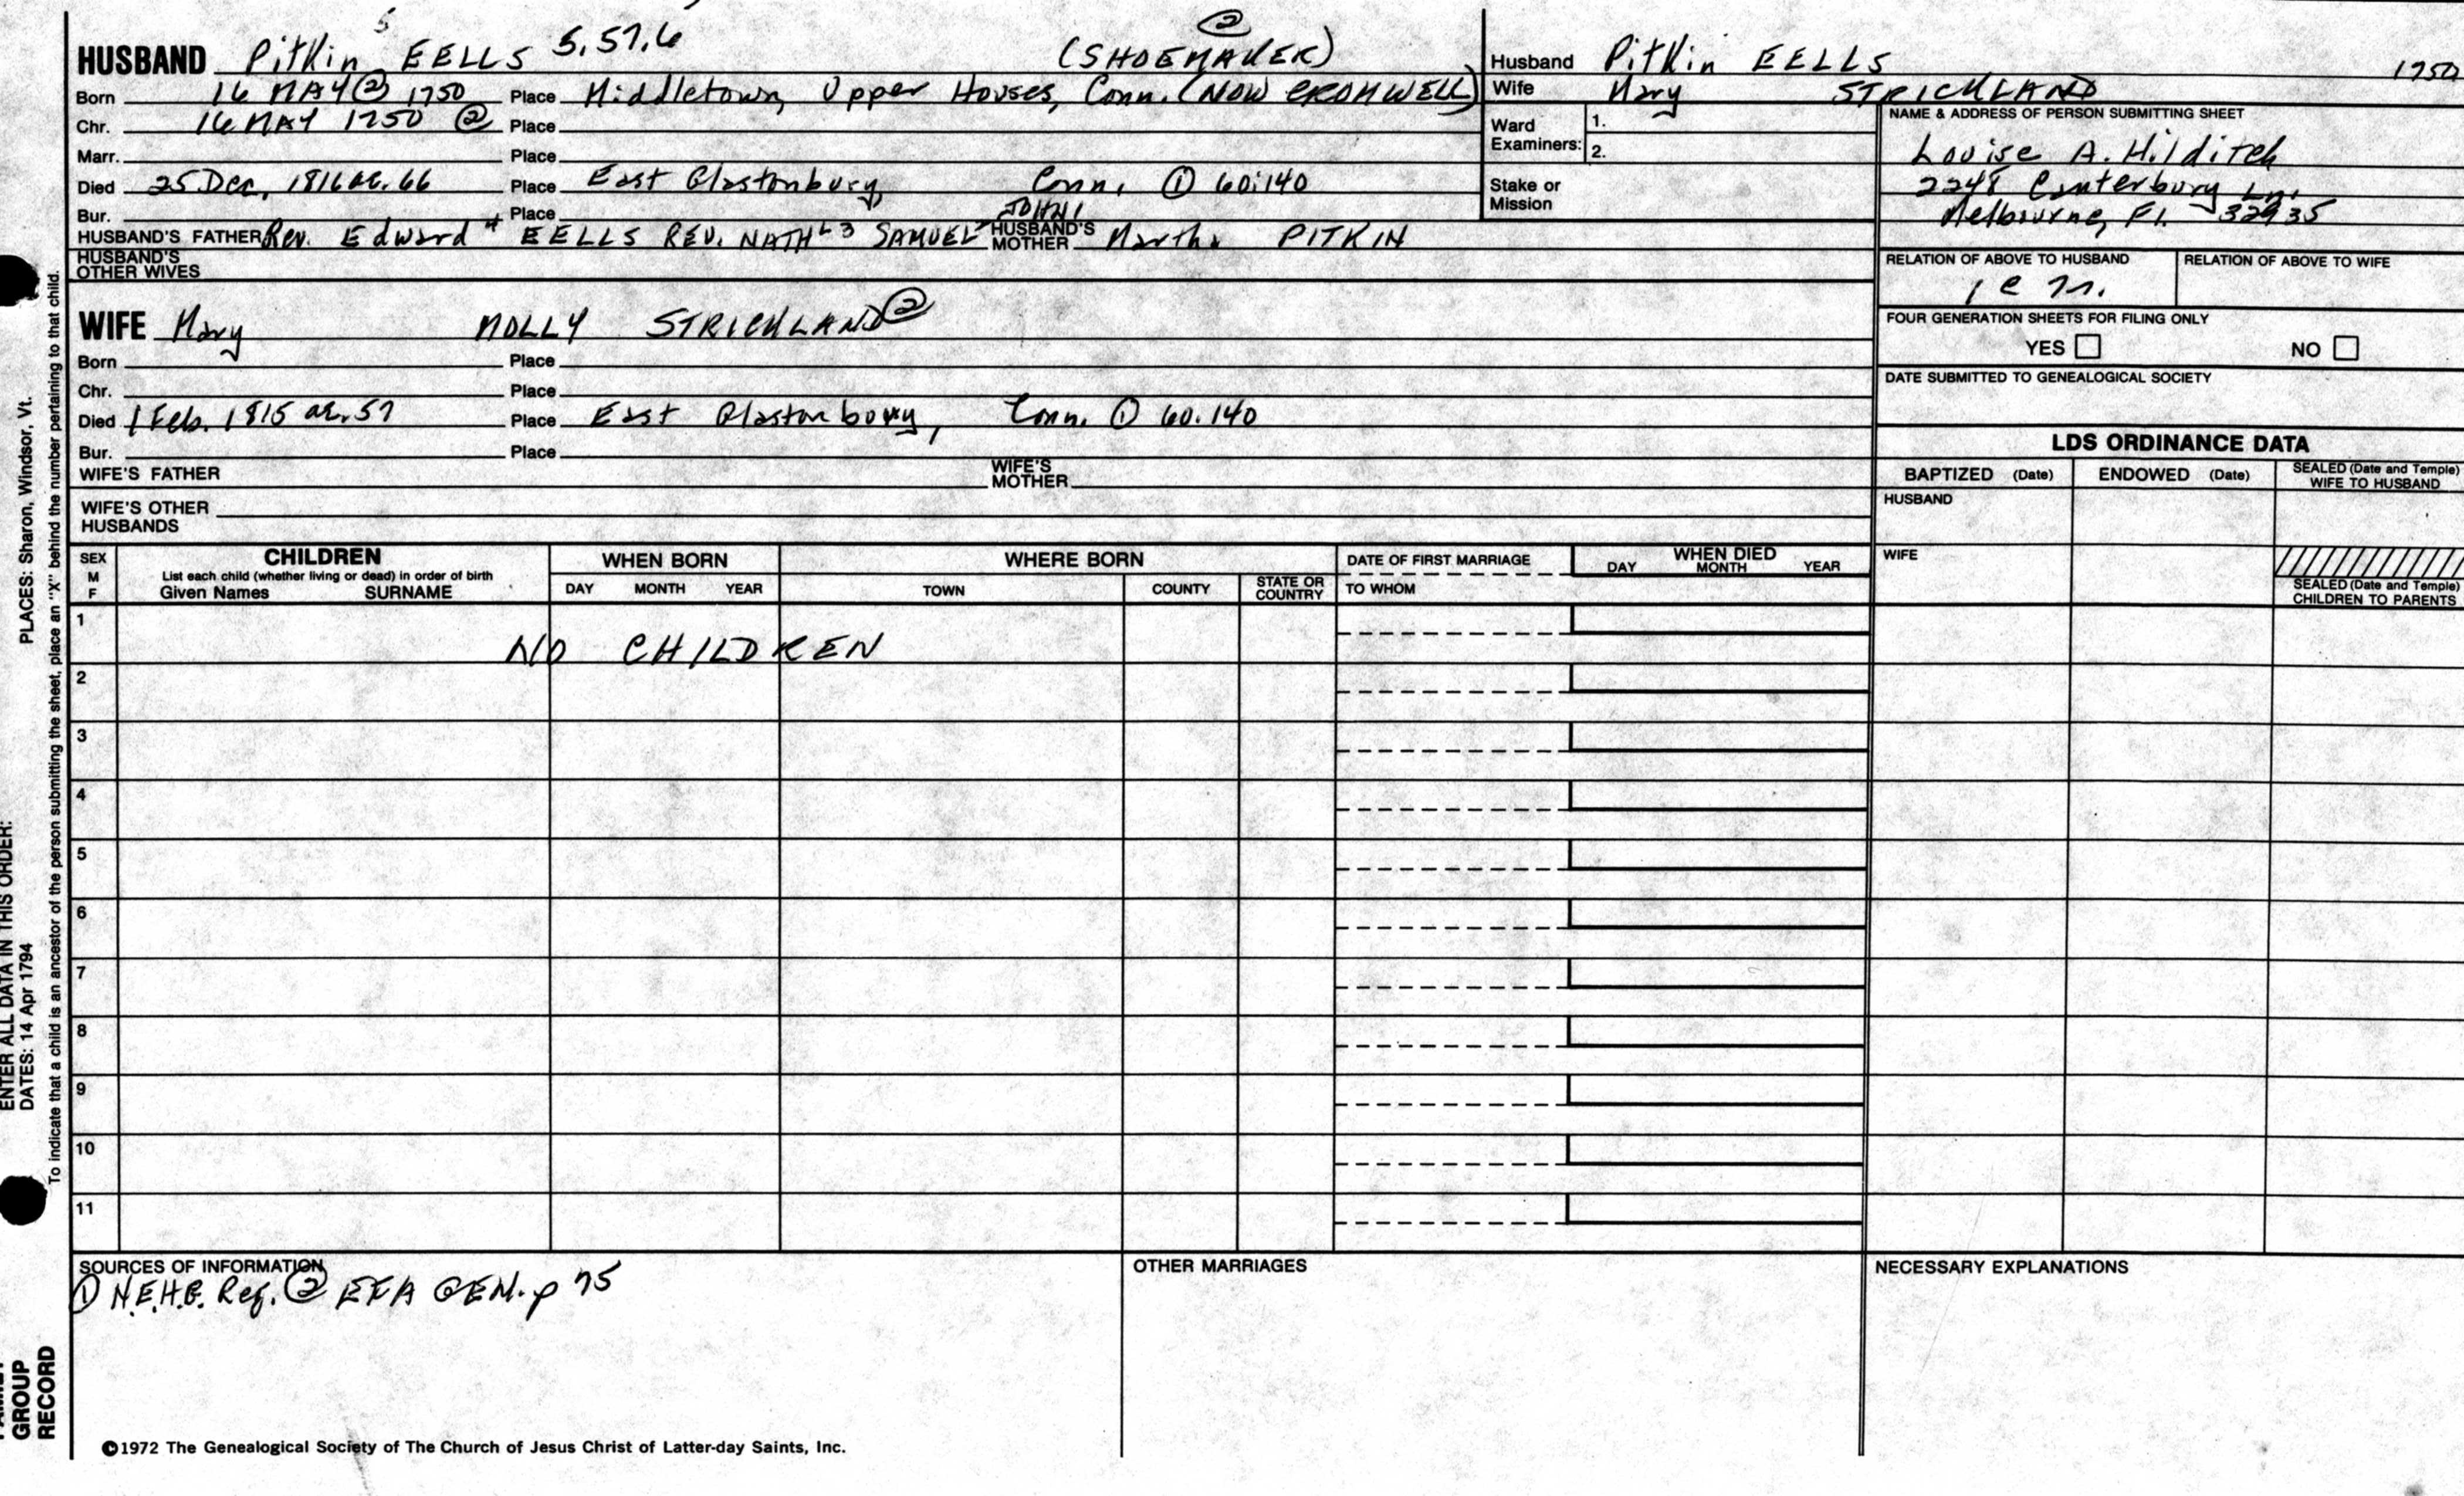 HUSBAND Pitkin 5 EELLS 5.57.6 (SHOEMAKER) ②
Born 16 MAY ② 1750 Place Middletown, Upper Houses, Conn. (NOW CROMWELL)
Chr. 16 MAY 1750 ② Place
Marr. Place
Died 25 Dec, 1816 ae. 66 Place East Glastonbury, Conn. ① 60:140
Bur. Place
HUSBAND'S FATHER Rev. Edward 4 EELLS REV. NATHL 3 SAMUEL 2 JOHN 1 HUSBAND'S MOTHER Martha PITKIN
HUSBAND'S OTHER WIVES
WIFE Mary MOLLY STRICKLAND ②
Born Place
Chr. Place
Died 1 Feb. 1815 ae. 57 Place East Glastonbury, Conn. ① 60.140
Bur. Place
WIFE'S FATHER WIFE'S MOTHER
WIFE'S OTHER HUSBANDS
Husband Pitkin EELLS 1750
Wife Mary STRICKLAND
Ward Examiners: 1.
2.
Stake or Mission
NAME & ADDRESS OF PERSON SUBMITTING SHEET
Louise A. Hilditch
2248 Canterbury Ln.
Melbourne, Fl. 32935
RELATION OF ABOVE TO HUSBAND RELATION OF ABOVE TO WIFE
FOUR GENERATION SHEETS FOR FILING ONLY
YES NO
DATE SUBMITTED TO GENEALOGICAL SOCIETY
LDS ORDINANCE DATA
BAPTIZED (Date) ENDOWED (Date) SEALED (Date and Temple) WIFE TO HUSBAND
HUSBAND
WIFE
SEALED (Date and Temple) CHILDREN TO PARENTS
SEX M F CHILDREN WHEN BORN WHERE BORN DATE OF FIRST MARRIAGE WHEN DIED
List each child (whether living or dead) in order of birth
Given Names SURNAME DAY MONTH YEAR TOWN COUNTY STATE OR COUNTRY TO WHOM DAY MONTH YEAR
1
NO CHILDREN
2
3
4
5
6
7
8
9
10
11
SOURCES OF INFORMATION
① N.E.H.G. Reg. ② EFA GEN. p 75
OTHER MARRIAGES
NECESSARY EXPLANATIONS
©1972 The Genealogical Society of The Church of Jesus Christ of Latter-day Saints, Inc.
PLACES: Sharon, Windsor, Vt.
ENTER ALL DATA IN THIS ORDER:
DATES: 14 Apr 1794
To indicate that a child is an ancestor of the person submitting the sheet, place an "X" behind the number pertaining to that child.
GROUP
RECORD